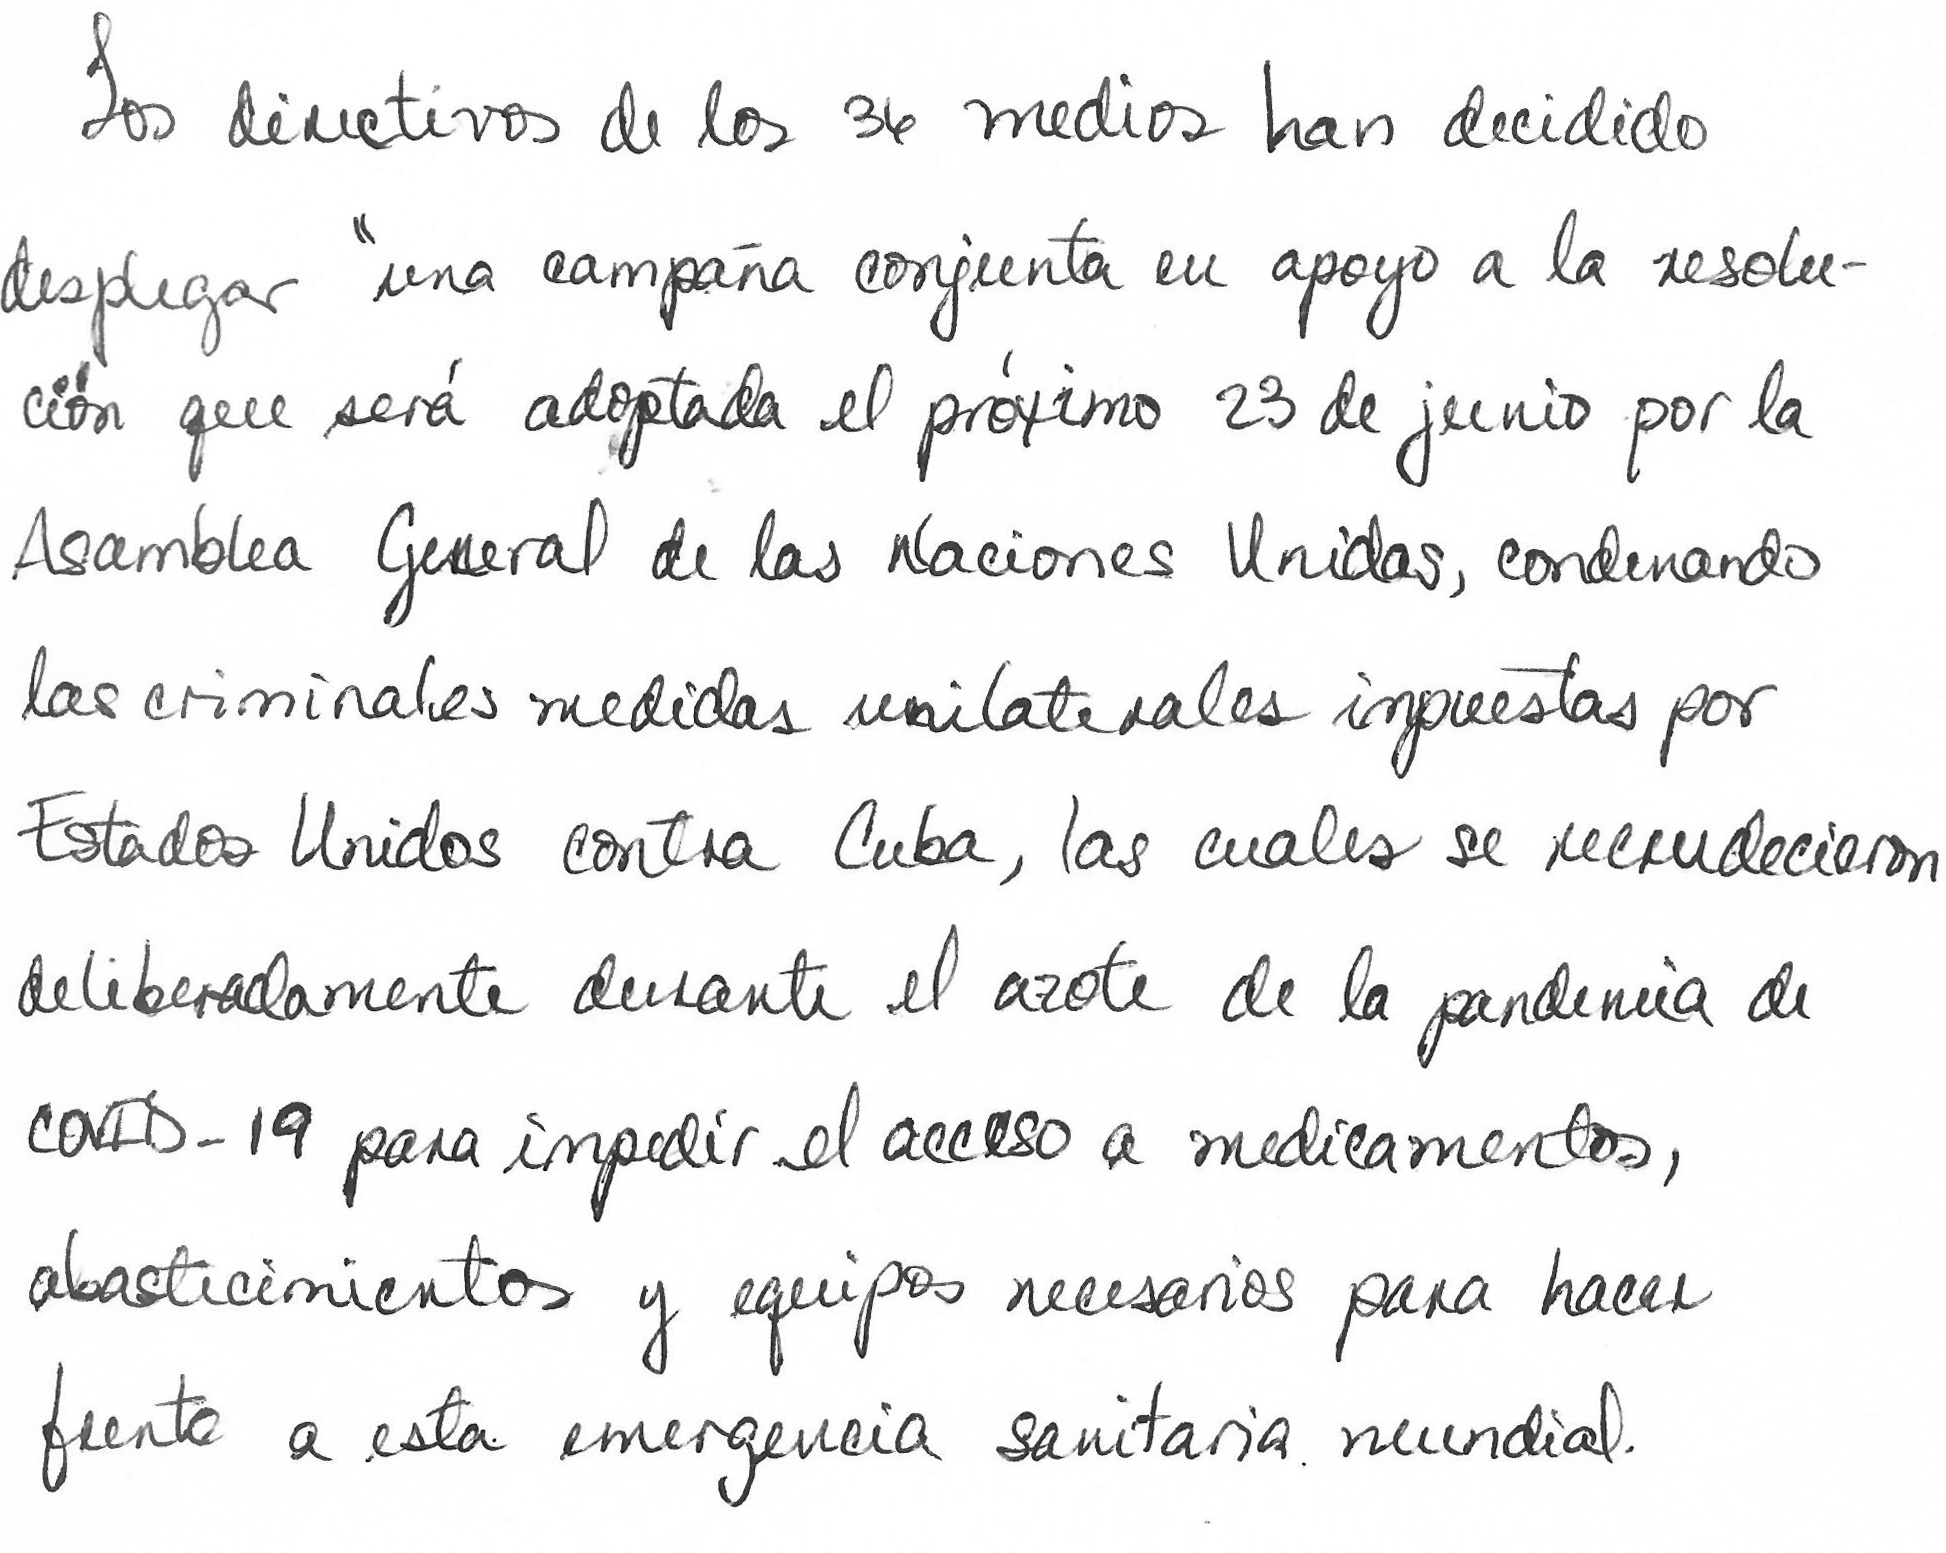 Los directivos de los 36 medios han decidido
desplegar "una campaña conjunta en apoyo a la resolu-
ción que será adoptada el próximo 23 de junio por la
Asamblea General de las Naciones Unidas, condenando
las criminales medidas unilaterales impuestas por
Estados Unidos contra Cuba, las cuales se recrudecieron
deliberadamente durante el azote de la pandemia de
COVID-19 para impedir el acceso a medicamentos,
abastecimientos y equipos necesarios para hacer
frente a esta emergencia sanitaria mundial.